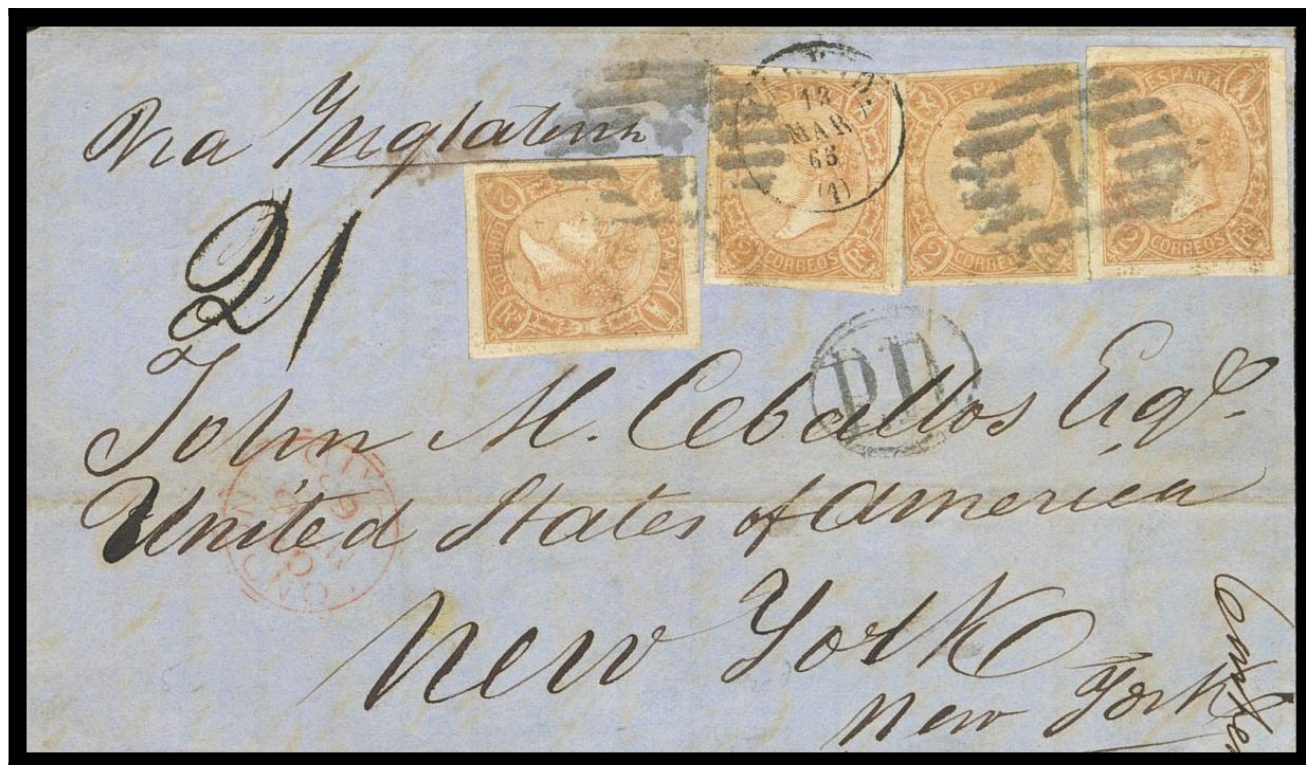 Via Inglaterra
21
ESPAÑA
CORREOS
2 Rs
ESPAÑA
2 CORREOS Rs
13
MAR
65
(1)
ESPAÑA
2 CORREOS Rs
1
ESPAÑA
2 CORREOS Rs
P.D.
John M. Ceballos Esqre.
United States of America
New York
New York